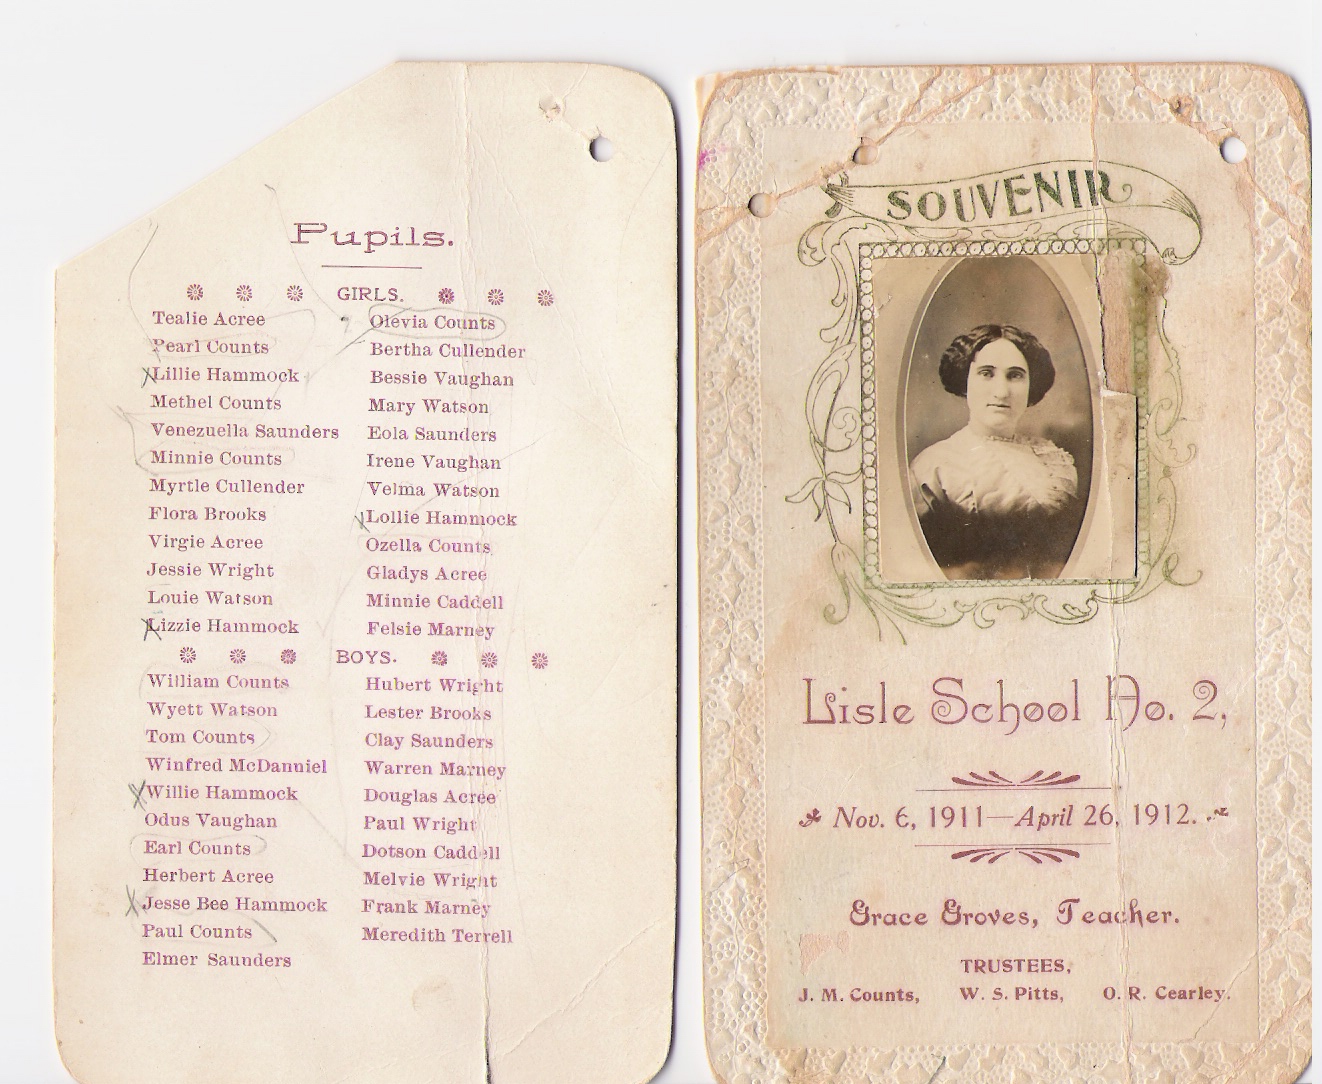 Pupils.
GIRLS.
Tealie Acree
Pearl Counts
Lillie Hammock
Methel Counts
Venezuella Saunders
Minnie Counts
Myrtle Cullender
Flora Brooks
Virgie Acree
Jessie Wright
Louie Watson
Lizzie Hammock
Olevia Counts
Bertha Cullender
Bessie Vaughan
Mary Watson
Eola Saunders
Irene Vaughan
Velma Watson
Lollie Hammock
Ozella Counts
Gladys Acree
Minnie Caddell
Felsie Marney
BOYS.
William Counts
Wyett Watson
Tom Counts
Winfred McDanniel
Willie Hammock
Odus Vaughan
Earl Counts
Herbert Acree
Jesse Bee Hammock
Paul Counts
Elmer Saunders
Hubert Wright
Lester Brooks
Clay Saunders
Warren Marney
Douglas Acree
Paul Wright
Dotson Caddell
Melvie Wright
Frank Marney
Meredith Terrell
SOUVENIR
Lisle School No. 2,
Nov. 6, 1911—April 26, 1912.
Grace Groves, Teacher.
TRUSTEES,
J. M. Counts, W. S. Pitts, O. R. Cearley.